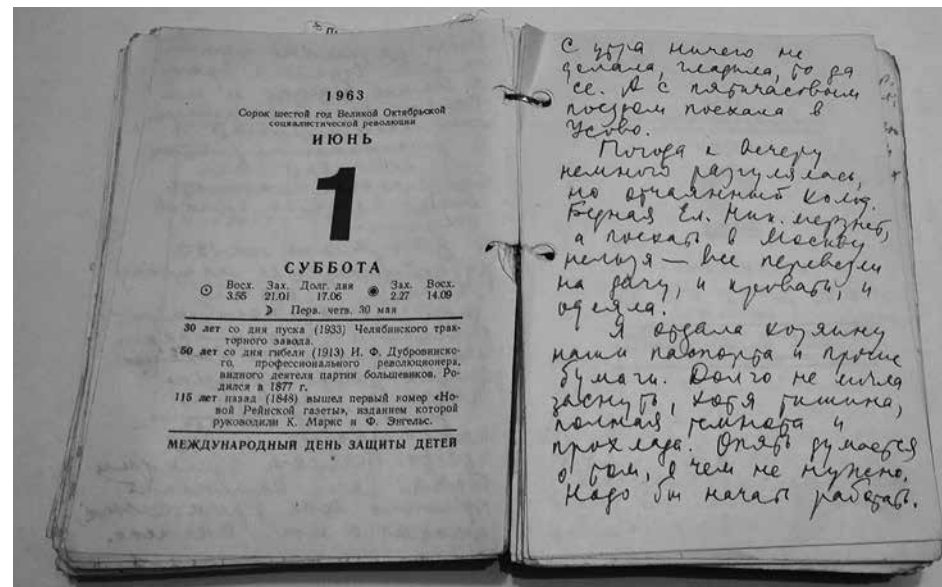 1963
Сорок шестой год Великой Октябрьской
социалистической революции
ИЮНЬ
1
СУББОТА
Восх. Зах. Долг. дня Зах. Восх.
3.55 21.01 17.06 2.27 14.09
Перв. четв. 30 мая
30 лет со дня пуска (1933) Челябинского трак-
торного завода.
50 лет со дня гибели (1913) И. Ф. Дубровинско-
го, профессионального революционера,
видного деятеля партии большевиков. Ро-
дился в 1877 г.
115 лет назад (1848) вышел первый номер «Но-
вой Рейнской газеты», изданием которой
руководили К. Маркс и Ф. Энгельс.
МЕЖДУНАРОДНЫЙ ДЕНЬ ЗАЩИТЫ ДЕТЕЙ
С утра ничего не
делала, гладила, то да
се. А с пятичасовым
поездом поехала в
Усово.
Погода к вечеру
немного разгулялась,
но отчаянный холод.
Бедная Ел. Ник. мерзнет,
а поехать в Москву
нельзя — все перевезли
на дачу, и кровати, и
одеяла.
Я отдала хозяину
наши паспорта и прочие
бумаги. Долго не могла
заснуть, хотя тишина,
полная темнота и
прохлада. Опять думается
о том, о чем не нужно.
Надо бы начать работать.